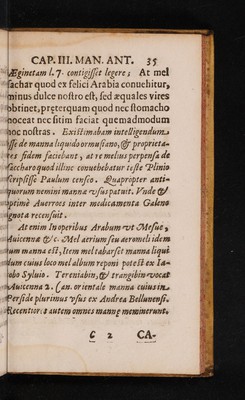 CAP. III. MAN. ANT. 35
Æginetam l. 7. contigisset legere; At mel
sachar quod ex felici Arabia conuehitur,
minus dulce nostro est, sed æquales vires
obtinet, præterquam quod nec stomacho
nocet nec sitim faciat quemadmodum
hoc nostras. Existimabam intelligendum
sse de manna liquido ormusiano, & proprieta-
res fidem faciebant, at re melius perpensa de
Saccharo quod illinc conuehebatur teste Plinio
scripsisse Paulum censeo. Quapropter anti-
quorum nemini manna vsus patuit. Vnde &
optimè Auerroes inter medicamenta Galeno
ignota recensuit.
At enim in operibus Arabum vt Mesue,
Auicennæ & c. Mel aerium seu aeromeli idem
cum manna est, Item mel tabarset manna liqui
dum cuius loco mel album reponi potest ex Ia-
cobo Syluio. Tereniabin, & trangibin vocat
Auicenna 2. Can. orientale manna cuius in
Perside plurimus vsus ex Andrea Bellunensi.
Recentiores autem omnes mannę meminerunt.
C 2 CA-